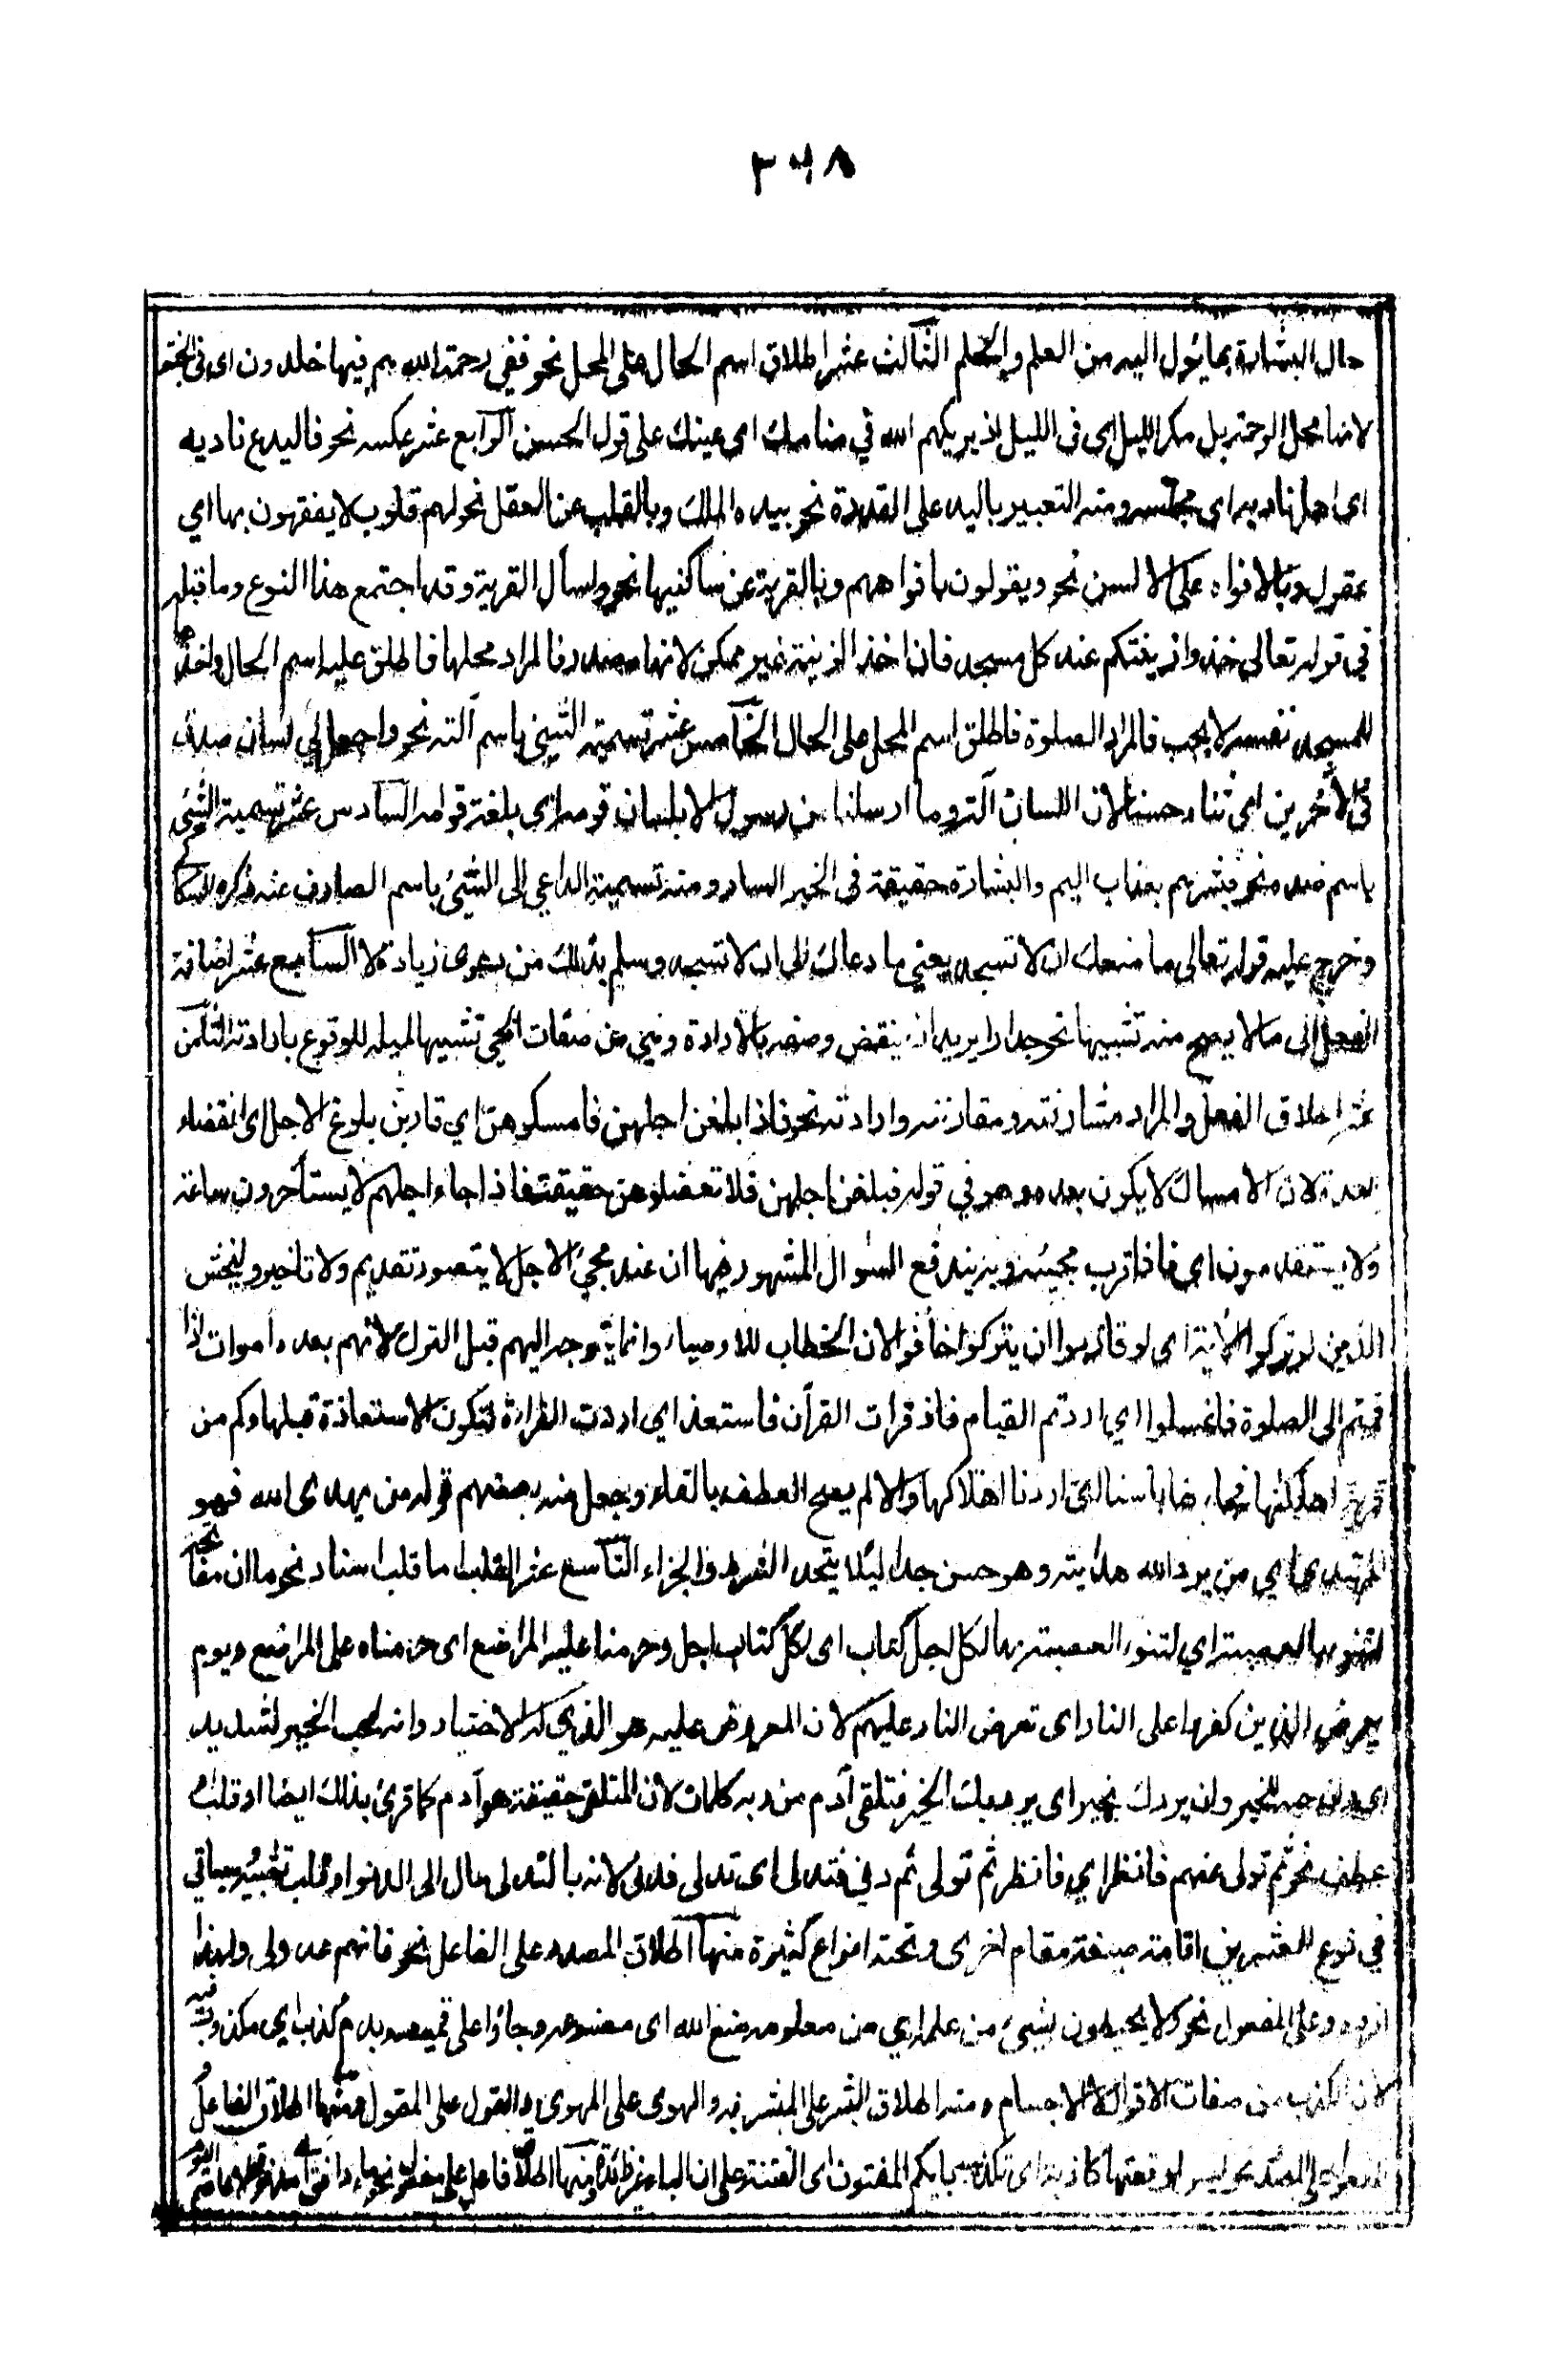 ٣٦٨
حال البشارة بما يئول اليه من العلم والحلم الثالث عشر اطلاق اسم الحال على المحل نحو ففي رحمة الله هم فيها خلدون اى فى الجنة
لانها محل الرحمة بل مكر الليل اى فى الليل اذ يريكهم الله في منامك اى عينك على قول الحسن الرابع عشر عكسه نحو فاليدع ناديه
اى اهل ناديه اى مجلسه ومنه التعبير باليد على القدرة نحو بيده الملك وبالقلب عن العقل نحو لهم قلوب لا يفقهون بها اي
عقول وبالافواه على الالسن نحو ويقولون بافواههم وبالقرية عن ساكنيها نحو واسأل القرية وقد اجتمع هذا النوع وما قبله
في قوله تعالى خذوا زينتكم عند كل مسجد فان اخذ الزينة غير ممكن لانها مصدر فالمراد محلها فاطلق عليه اسم الحال واخذها
للمسجد نفسه لا يجب فالمراد الصلوة فاطلق اسم المحل على الحال الخامس عشر تسمية الشيئ باسم آلته نحو واجعل لي لسان صدق
في الآخرين اي ثناء حسنا لان اللسان آلته وما ارسلنا من رسول الا بلسان قومه اى بلغة قومه السادس عشر تسمية الشيئ
باسم ضده نحو فبشرهم بعذاب اليم والبشارة حقيقة فى الخبر السار ومنه تسمية الداعي إلى الشيئ باسم الصارف عنه ذكره السكاكي
وخرج عليه قوله تعالى ما منعك ان لا تسجد يعني ما دعاك إلى ان لا تسجد وسلم بذلك من دعوى زيادة لا السابع عشر اضافة
الفعل إلى ما لا يصح منه تشبيها نحو جدارا يريد ان ينقض وصفه بالارادة وهي من صفات الحي تشبيها لميله للوقوع بارادته الثامن
عشر اطلاق الفعل والمراد مشارفته ومقارنته وارادته نحو فاذا بلغن اجلهن فامسكوهن اي قاربن بلوغ الاجل اى انقضاء
العدة لان الامساك لا يكون بعده وهو في قوله فبلغن اجلهن فلا تعضلوهن حقيقة فاذا جاء اجلهم لا يستأخرون ساعة
ولا يستقدمون اى فاذا قرب مجيئه وبه يندفع السوال المشهور فيها ان عند مجيئ الاجل لا يتصور تقديم ولا تاخير وليخش
الذين لو تركوا الآية اى لو قاربوا ان يتركوا خافوا لان الخطاب للاوصياء وانما يتوجه اليهم قبل الترك لانهم بعده اموات اذا
قمتم الى الصلوة فاغسلوا اي اردتم القيام فاذا قرات القرآن فاستعذ اي اردت القراءة لتكون الاستعاذة قبلها وكم من
قرية اهلكنها فجاءها باسنا اى اردنا اهلاكها والا لم يصح العطف بالفاء وجعل منه بعضهم قوله من يهدى الله فهو
المهتدى اي من يرد الله هدايته وهو حسن جدا ليئلا يتحد الشرط والجزاء التاسع عشر القلب اما قلب اسناد نحو ما ان مفاتحه
لتنوء بالعصبة اي لتنوء العصبة بها لكل اجل كتاب اى لكل كتاب اجل وحرمنا عليه المراضع اى حرمناه على المراضع ويوم
يعرض الذين كفروا على النار اى تعرض النار عليهم لان المعروض عليه هو الذي له الاختيار وانه لحب الخير لشديد
اى وان حبه للخير وان يردك بخير اى يرد بك الخير فتلقى آدم من ربه كلمات لان المتلقى حقيقة هو آدم كما قرئ بذلك ايضا او قلب
عطف نحو ثم تول عنهم فانظر اي فانظر ثم تولى ثم دنى فتدلى اى تدلى فدنى لانه بالتدلى مال الى الدنو او قلب تشبيه وسياتي
في نوعه العشرين اقامة صيغة مقام اخرى وتحته انواع كثيرة منها اطلاق المصدر على الفاعل نحو فانهم عدو لى ولهذا
افرده وعلى المفعول نحو ولا يحيطون بشيئ من علمه اي من معلومه صنع الله اى مصنوعه وجاؤا على قميصه بدم كذب اي مكذوب فيه
لان الكذب من صفات الاقوال لا الاجسام ومنه اطلاق البشرى على المبشر به والهوى على المهوى والقول على المقول ومنها اطلاق الفاعل
والمفعول على المصدر نحو ليس لوقعتها كاذبة اى تكذيب بايكم المفتون اى الفتنة على ان الباء غير زائدة ومنها اطلاق فاعل على مفعول نحو ماء دافق اى مدفوق